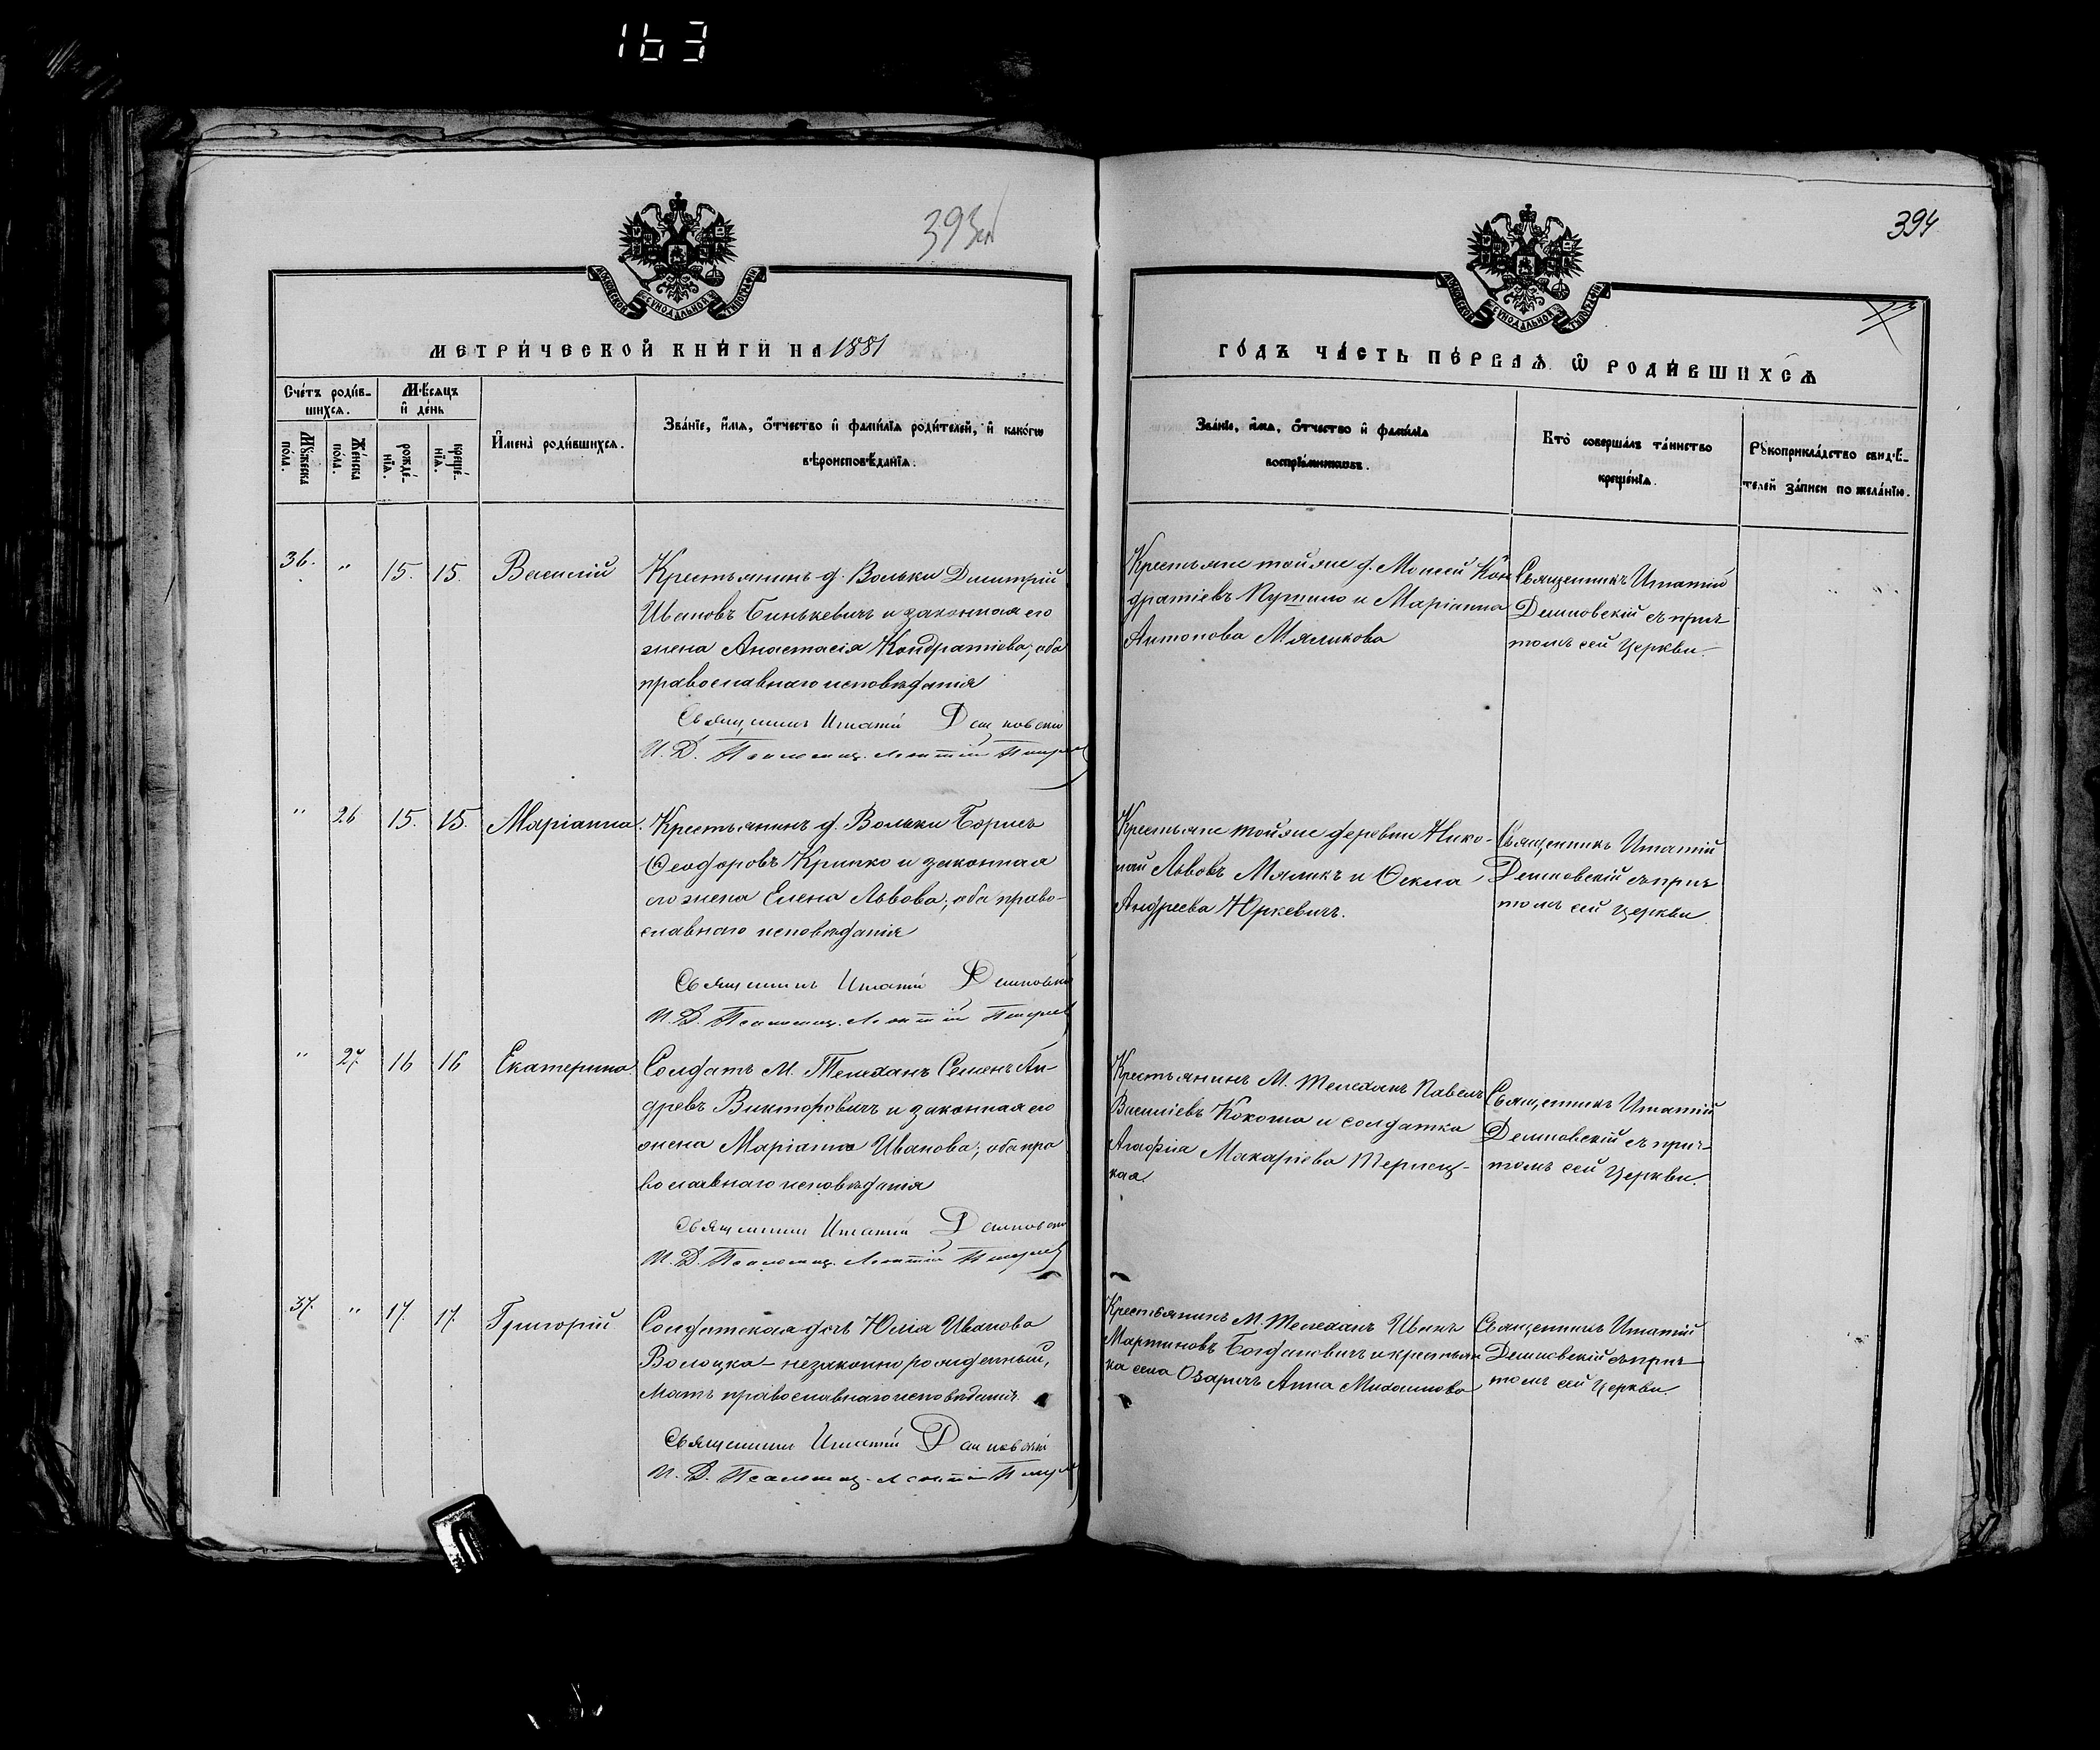 163
393об
394
МОСКОВСКОЙ СѴНОДАЛЬНОЙ ТИПОГРАФІИ
МОСКОВСКОЙ СѴНОДАЛЬНОЙ ТИПОГРАФІИ
МЕТРИ́ЧЕСКОЙ КНИ́ГИ НА 1881
ГО́ДЪ ЧА́СТЬ ПЕ́РВАЯ Ѿ РОДИ́ВШИХСЯ
Сче́тъ роди́в-
шихся.
Мѣ́сяцъ
и де́нь
Мꙋ́жеска
по́ла.
Же́нска
по́ла.
рожде́-
нїя.
креще́-
нїя.
Имена̀ роди́вшихся.
Зва́нїе, и́мя, ѻ́тчество и фами́лїя роди́телей, и како́гѡ
вѣроисповѣ́данїя.
Зва́нїе, и́мя, ѻ́тчество и фами́лїя
воспрїе́мниковъ.
Кто̀ соверша́лъ та́инство
креще́нїя.
Рꙋкоприкла́дство свидѣ́-
телей за́писи по жела́нїю.
36. " 15. 15. Василій
Крестьянинъ д. Вольки Дмитрій
Ивановъ Бинькевичъ и законная его
жена Анастасія Кондратіева; оба
православнаго исповѣданія
Священникъ Игнатій
И. Д. Псаломщ. Леонтій
Крестьяне той же д. Моисей Кон
дратіевъ Путило и Маріанна
Антонова Мяликова
Священникъ Игнатій
съ прич
томъ сей Церкви.
" 26 15. 15. Маріанна.
Крестьянинъ д. Вольки Борисъ
Ѳеодоровъ Крипко и законная
его жена Елена Львова; оба право-
славнаго исповѣданія
Священникъ Игнатій
И. Д. Псаломщ. Леонтій
Крестьяне той же деревни Нико-
лай Львовъ Мяликъ и Ѳекла
Андреева Юркевичъ.
Священникъ Игнатій
съ прич
томъ сей Церкви.
" 27. 16 16 Екатерина.
Солдатъ М. Телеханъ Семенъ Ан-
дреевъ Викторовичъ и законная его
жена Маріанна Иванова; оба пра
вославнаго исповѣданія
Священникъ Игнатій
И. Д. Псаломщ. Леонтій
Крестьянинъ М. Телеханъ Павелъ
Василіевъ Кокоша и солдатка
Агафія Макаріева
кая.
Священникъ Игнатій
съ прич-
томъ сей Церкви.
37. " 17. 17. Григорій
Солдатская дочь Юлія Иванова
Волоцка - незаконнорожденный,
мать православнаго исповѣданія.
Священникъ Игнатій
И. Д. Псаломщ. Леонтій
Крестьянинъ М. Телеханъ Иванъ
Мартиновъ Богдановичъ и крестьян
ка села Озаричъ Анна Михаилова
Священникъ Игнатій
съ прич
томъ сей Церкви.